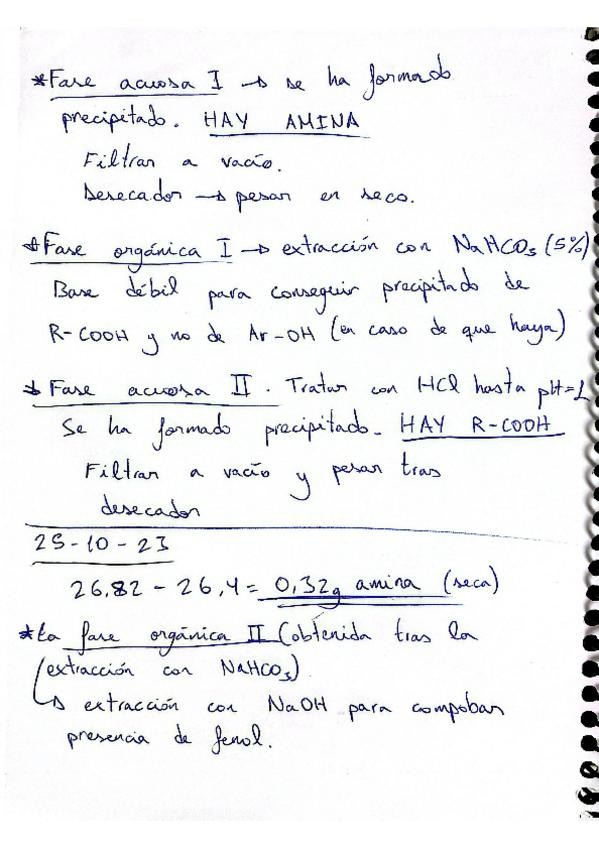 *Fase acuosa I → se ha formado
precipitado. HAY AMINA
Filtrar a vacío.
Desecador → pesar en seco.
*Fase orgánica I → extracción con NaHCO3 (5%)
Base débil para conseguir precipitado de
R-COOH y no de Ar-OH (en caso de que haya)
* Fase acuosa II. Tratar con HCl hasta pH=1
Se ha formado precipitado. HAY R-COOH
Filtrar a vacío y pesar tras
desecador
25-10-23
26,82 - 26,4 = 0,32g amina (seca)
*La fase orgánica II (obtenida tras la
extracción con NaHCO3)
→ extracción con NaOH para compobar
presencia de fenol.